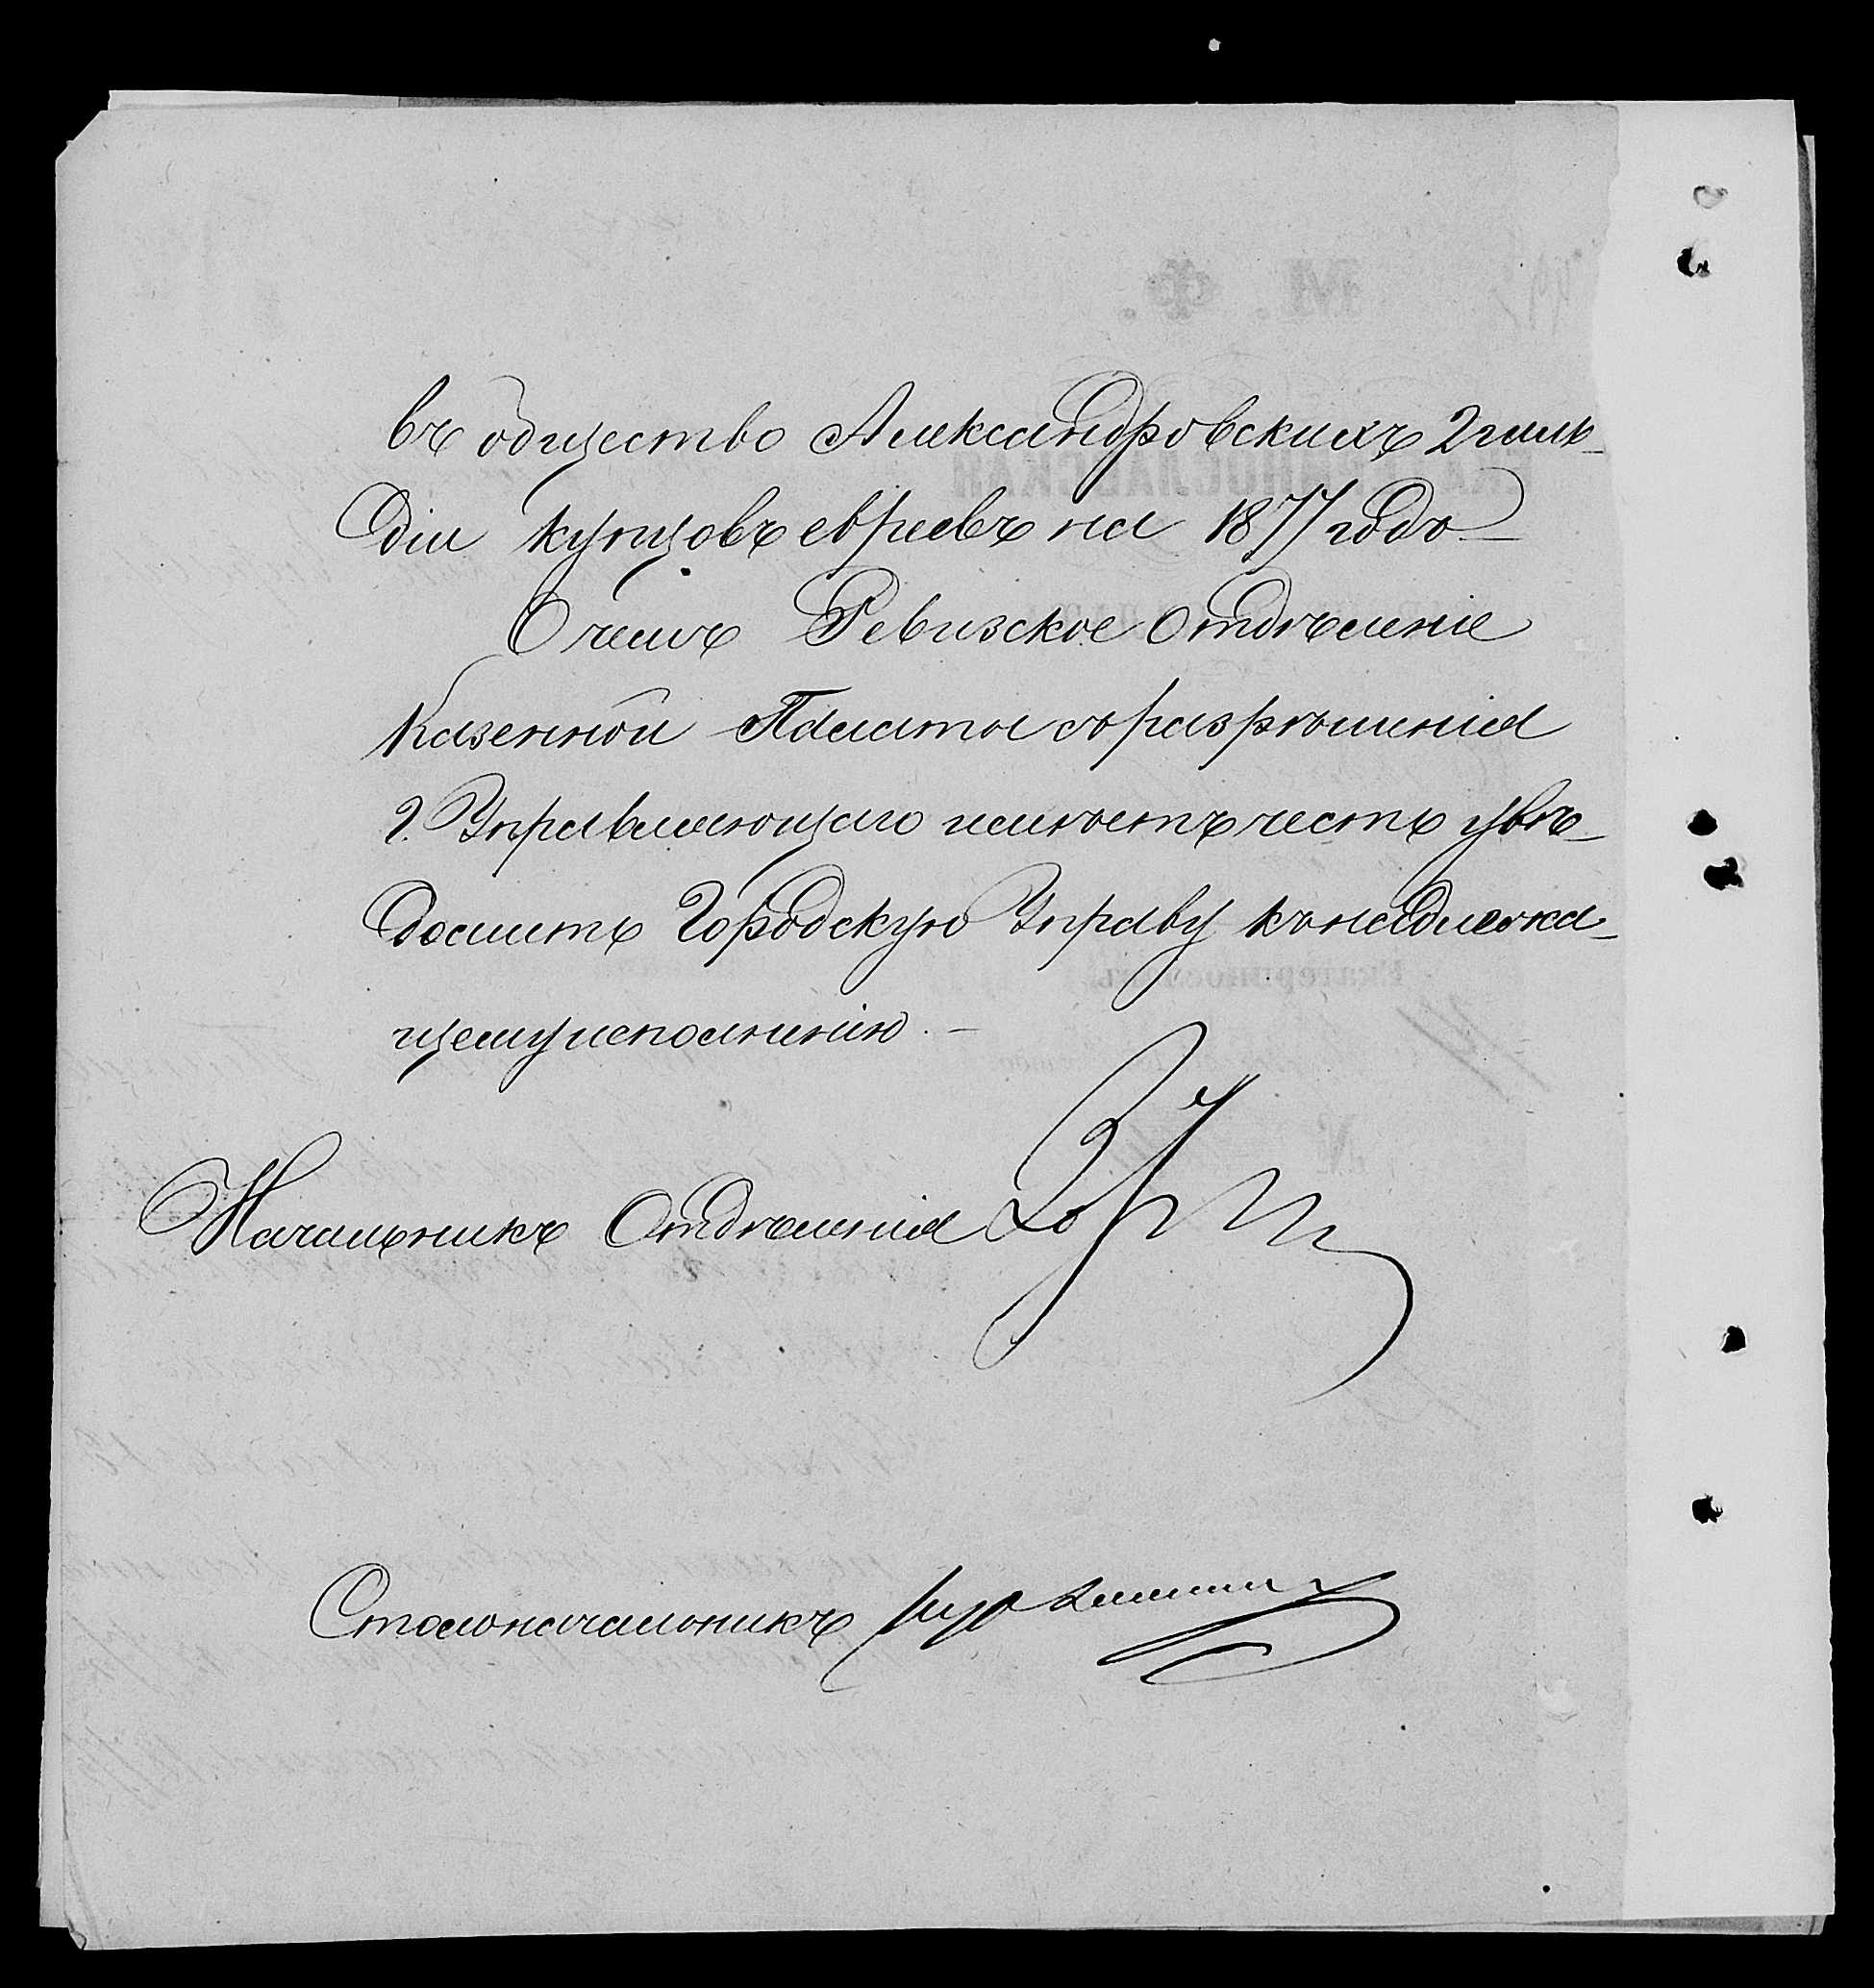 въ общество Александровскихъ 2 гиль-
діи купцовъ евреевъ на 1877 годъ
О чемъ Ревизское Отдѣленіе
Казенной Палаты съ разрѣшенія
г. Управляющаго имѣетъ честь увѣ-
домить Городскую Управу къ надлежа-
щему исполненію. –
Начальникъ Отдѣленія
Столоначальникъ